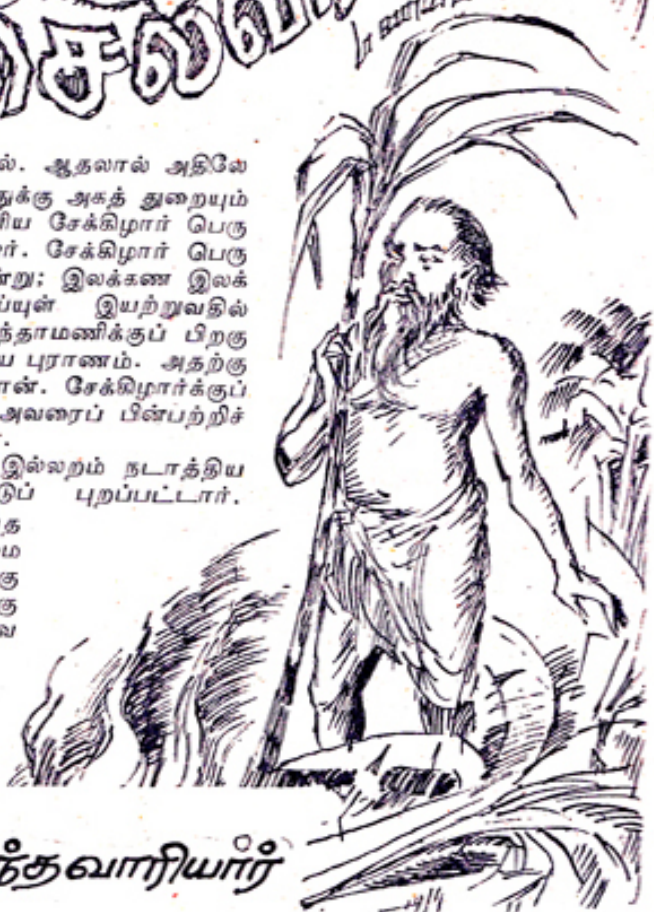 செல்வ
ல். ஆதலால் அதிலே
துக்கு அகத் துறையும்
ரிய சேக்கிழார் பெரு
ர். சேக்கிழார் பெரு
ன்று; இலக்கண இலக்
ப்யுள் இயற்றுவதில்
ந்தாமணிக்குப் பிறகு
ய புராணம். அதற்கு
ான். சேக்கிழார்க்குப்
அவரைப் பின்பற்றிச்
.
இல்லறம் நடாத்திய
டுப் புறப்பட்டார்.
த
மை
கு
கு
வ
ந்தவாரியார்